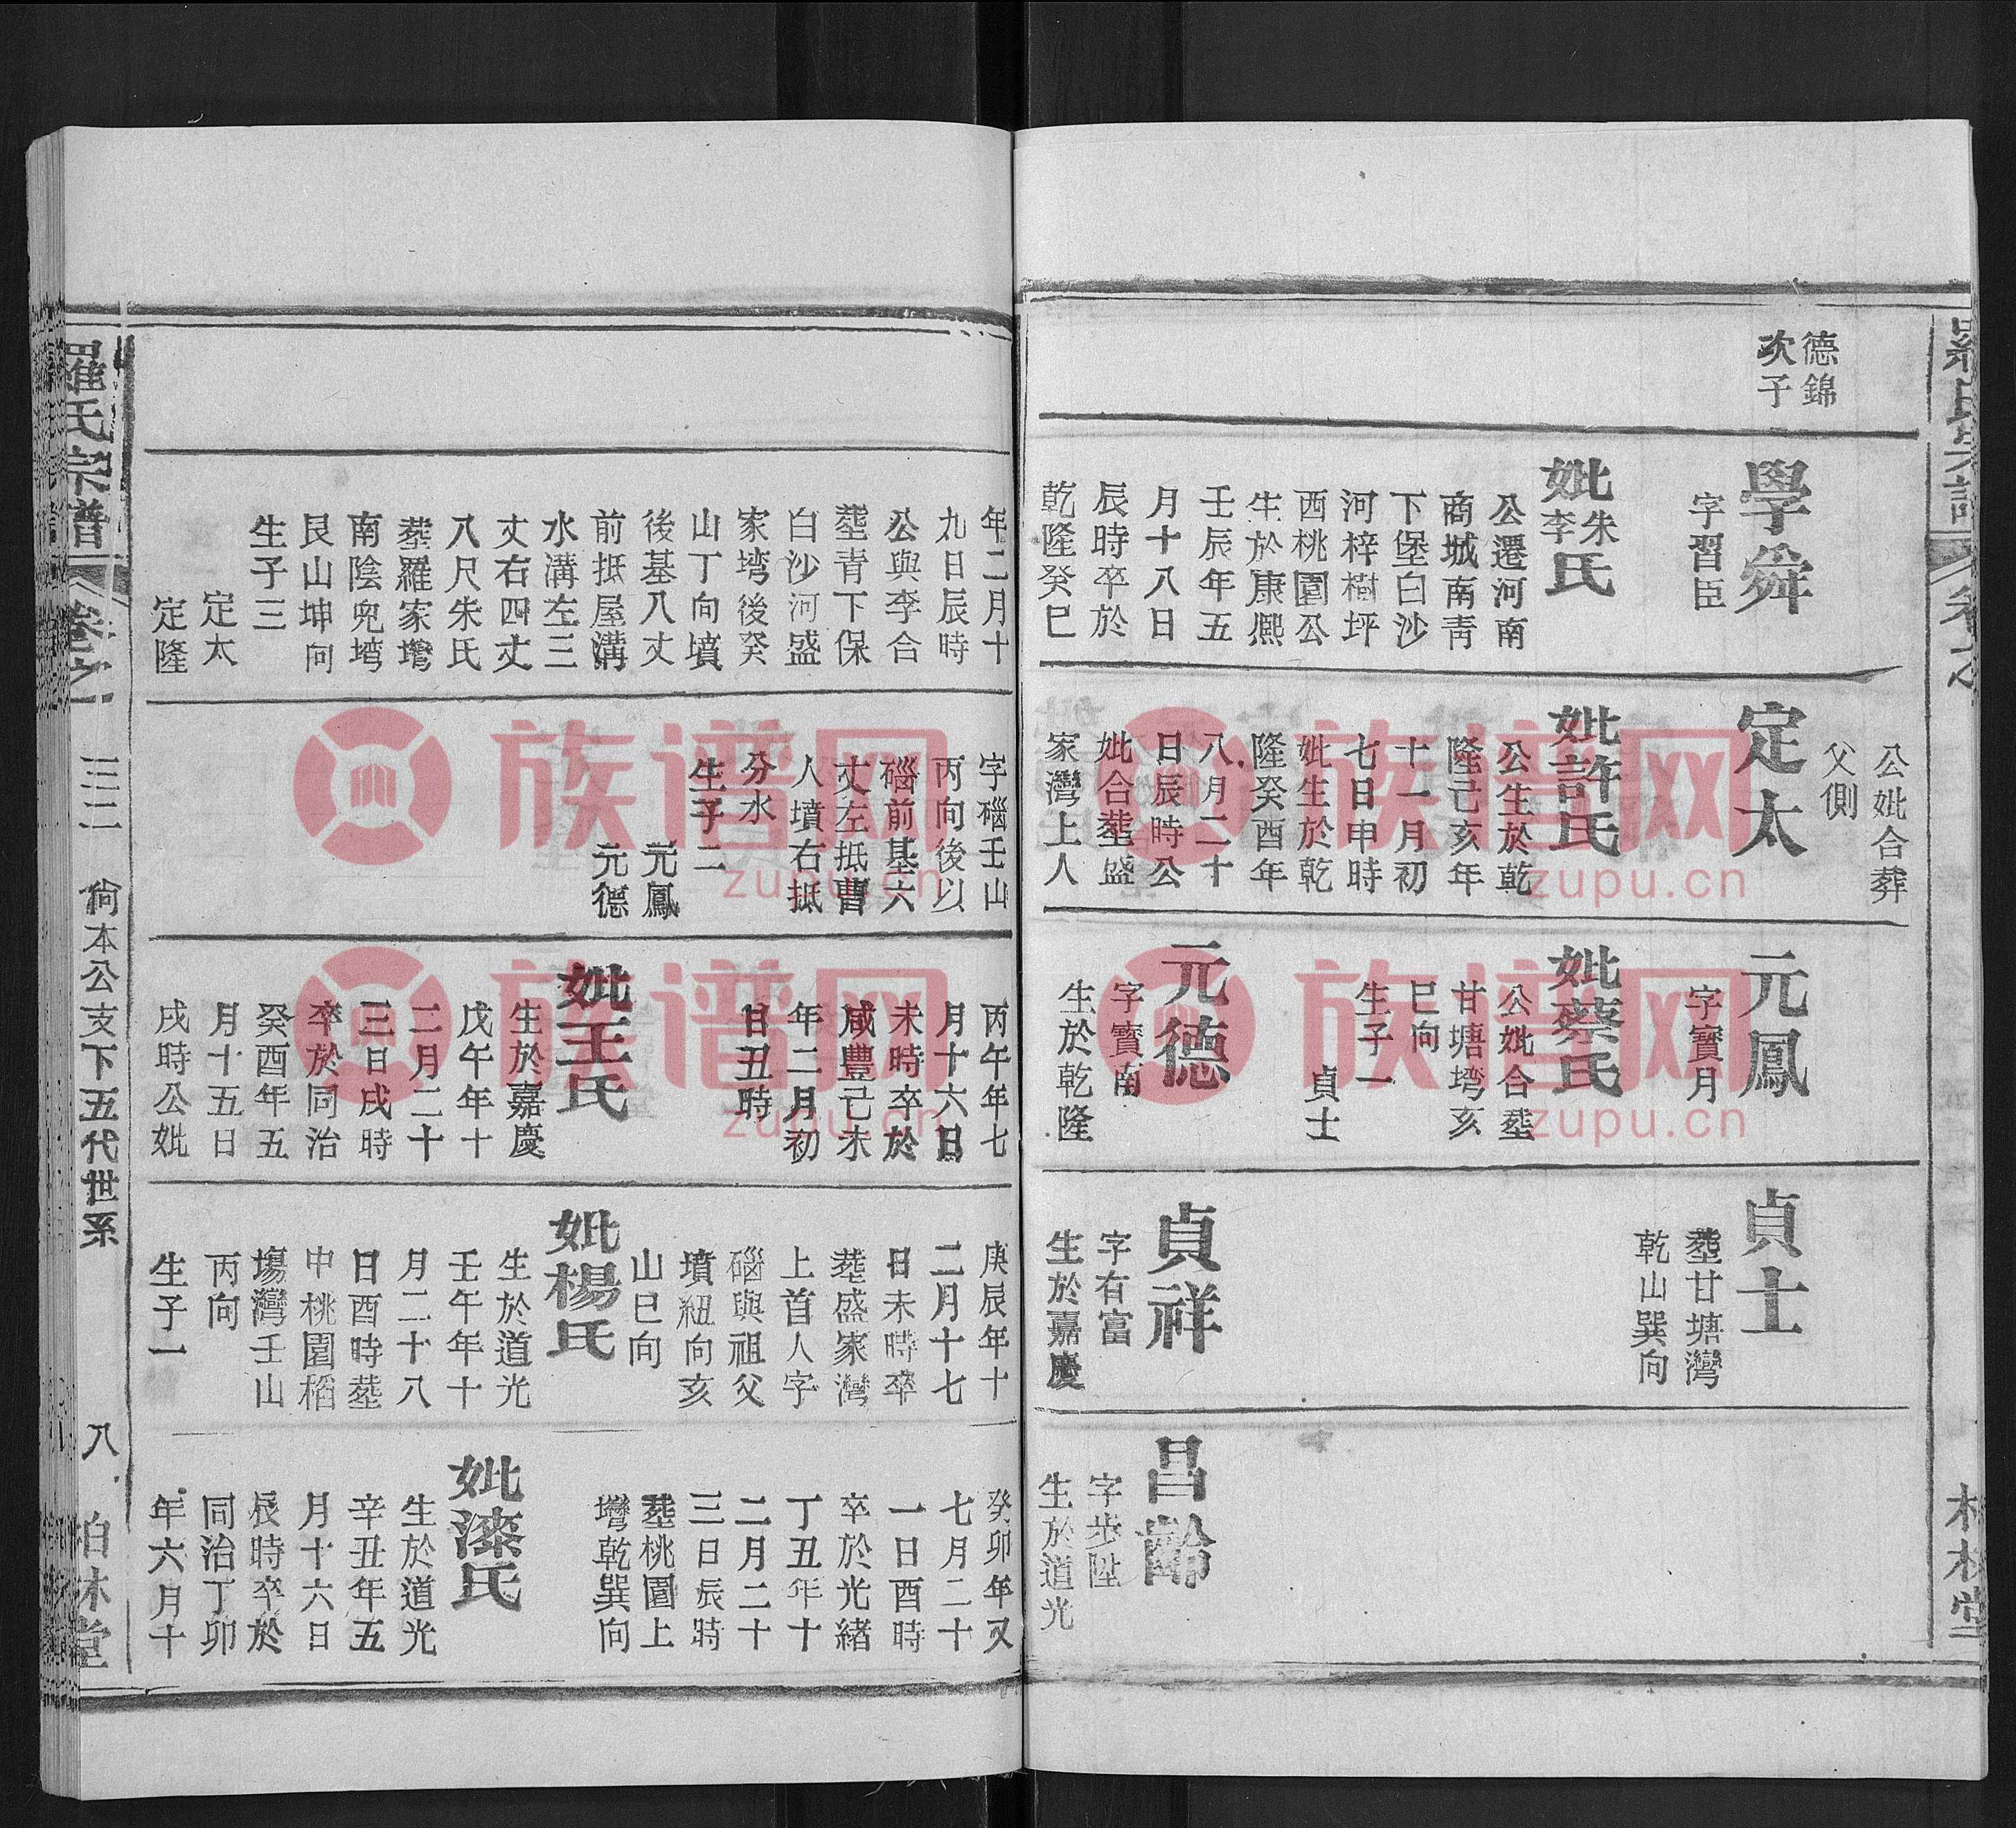 德錦
次子
學舜
字習臣
妣朱李氏
公遷河南
商城南靑
下堡白沙
河梓樹坪
西桃園公
生於康熙
壬辰年五
月十八日
辰時卒於
乾隆癸巳
公妣合葬
父側
定太
妣許氏
公生於乾
隆己亥年
十一月初
七日申時
妣生於乾
隆癸酉年
八月二十
日辰時公
妣合塟盛
家灣上人
元鳳
字寳月
妣蔡氏
公妣合塟
甘塘塆亥
巳向
生子一
貞士
元德
字寳南
生於乾隆
貞士
塟甘塘灣
乾山巽向
貞祥
字有富
生於嘉慶
昌齡
字步陞
生於道光
年二月十
九日辰時
公與李合
塟青下保
白沙河盛
家塆後癸
山丁向墳
後基八丈
前抵屋溝
水溝左三
丈右四丈
八尺朱氏
塟羅家塆
南陰兜塆
艮山坤向
生子三
定太
定隆
字碯壬山
丙向後以
碯前基六
丈左抵曹
人墳右抵
分水
生子二
元鳳
元德
丙午年七
月十六日
未時卒於
咸豐己未
年二月初
日丑時
妣王氏
生於嘉慶
戊午年十
二月二十
三日戌時
卒於同治
癸酉年五
月十五日
戌時公妣
庚辰年十
二月十七
日未時卒
塟盛家灣
上首人字
碯與祖父
墳紐向亥
山巳向
妣楊氏
生於道光
壬午年十
月二十八
日酉時塟
中桃園稻
塲灣壬山
丙向
生子一
癸卯年又
七月二十
一日酉時
卒於光緒
丁丑年十
二月二十
三日辰時
塟桃園上
塆乾巽向
妣漆氏
生於道光
辛丑年五
月十六日
辰時卒於
同治丁卯
年六月十
羅氏宗譜
卷之
三二
尙本公支下五代世系
八
柏林堂
族谱网
zupu.cn
族谱网
zupu.cn
族谱网
zupu.cn
族谱网
zupu.cn